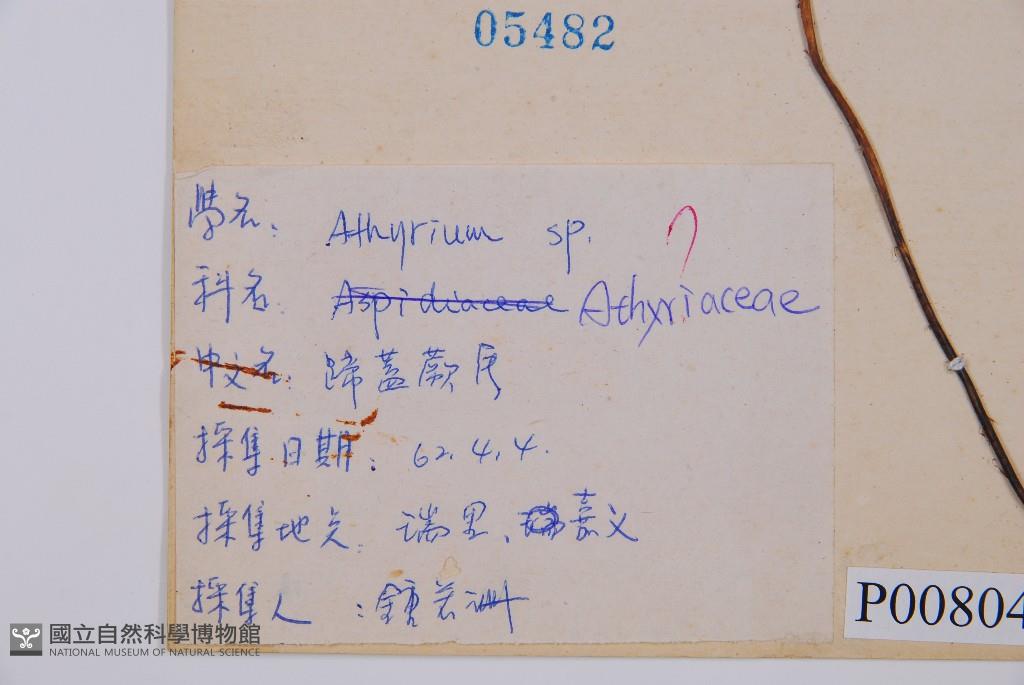 05482
學名: Athyrium sp. ?
科名: Aspidiaceae Athyriaceae
中文名: 蹄蓋蕨屬
採集日期: 62.4.4.
採集地点: 瑞里、嘉义
採集人:
P00804
國立自然科學博物館
NATIONAL MUSEUM OF NATURAL SCIENCE